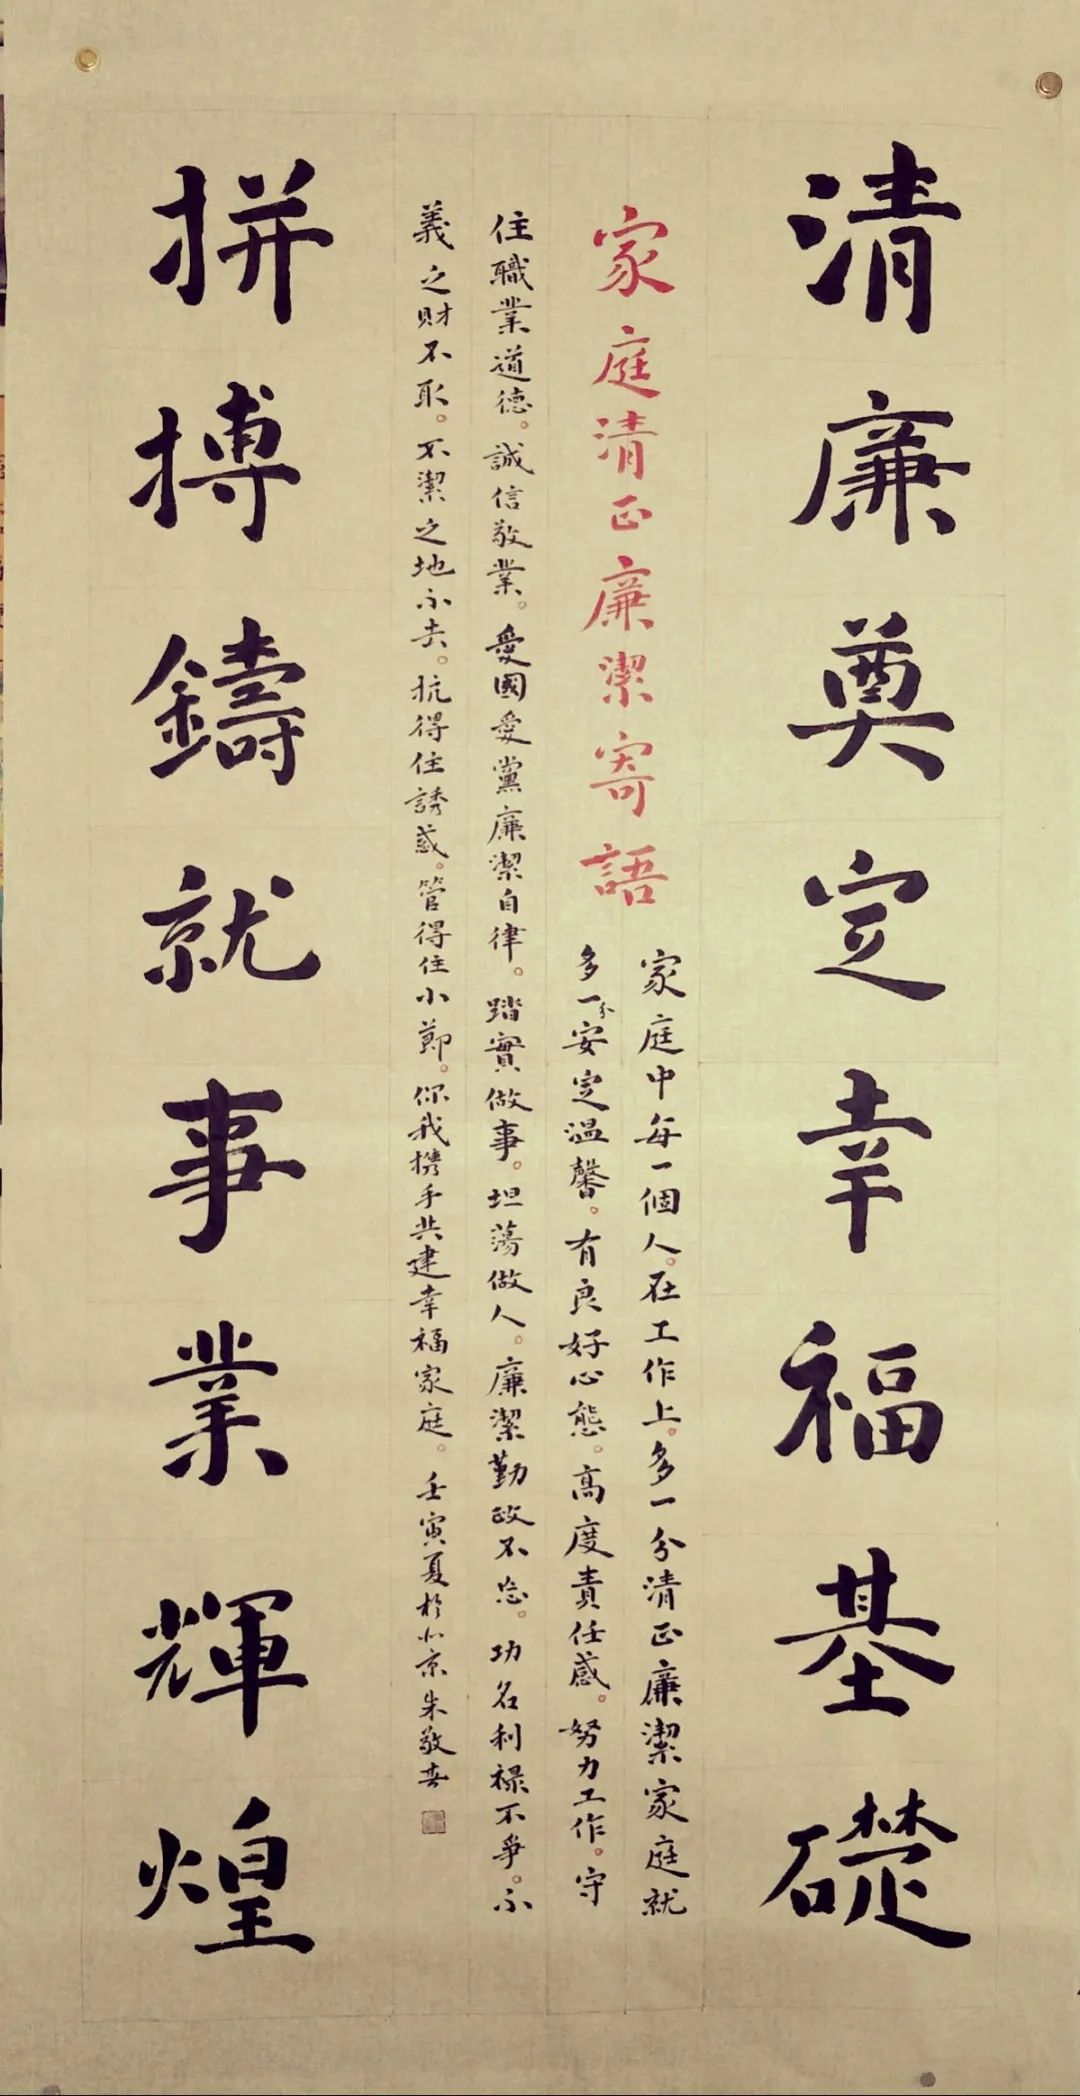 清廉奠定幸福基礎
家庭清正廉潔寄語
家庭中每一個人。在工作上。多一分清正廉潔家庭就
多一分安定温馨。有良好心態。高度責任感。努力工作。守
住職業道德。誠信敬業。愛國愛黨廉潔自律。踏實做事。坦蕩做人。廉潔勤政不忘。功名利禄不爭。不
義之財不取。不潔之地不去。抗得住誘惑。管得住小節。你我携手共建幸福家庭。壬寅夏於北京朱敬
拼搏鑄就事業輝煌